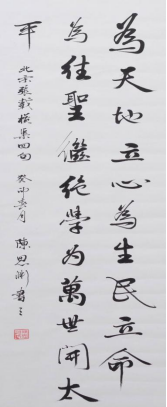 為天地立心為生民立命
為往聖繼絶學为萬世開太
平
北宋張載橫渠四句 癸卯 月 陳思 書